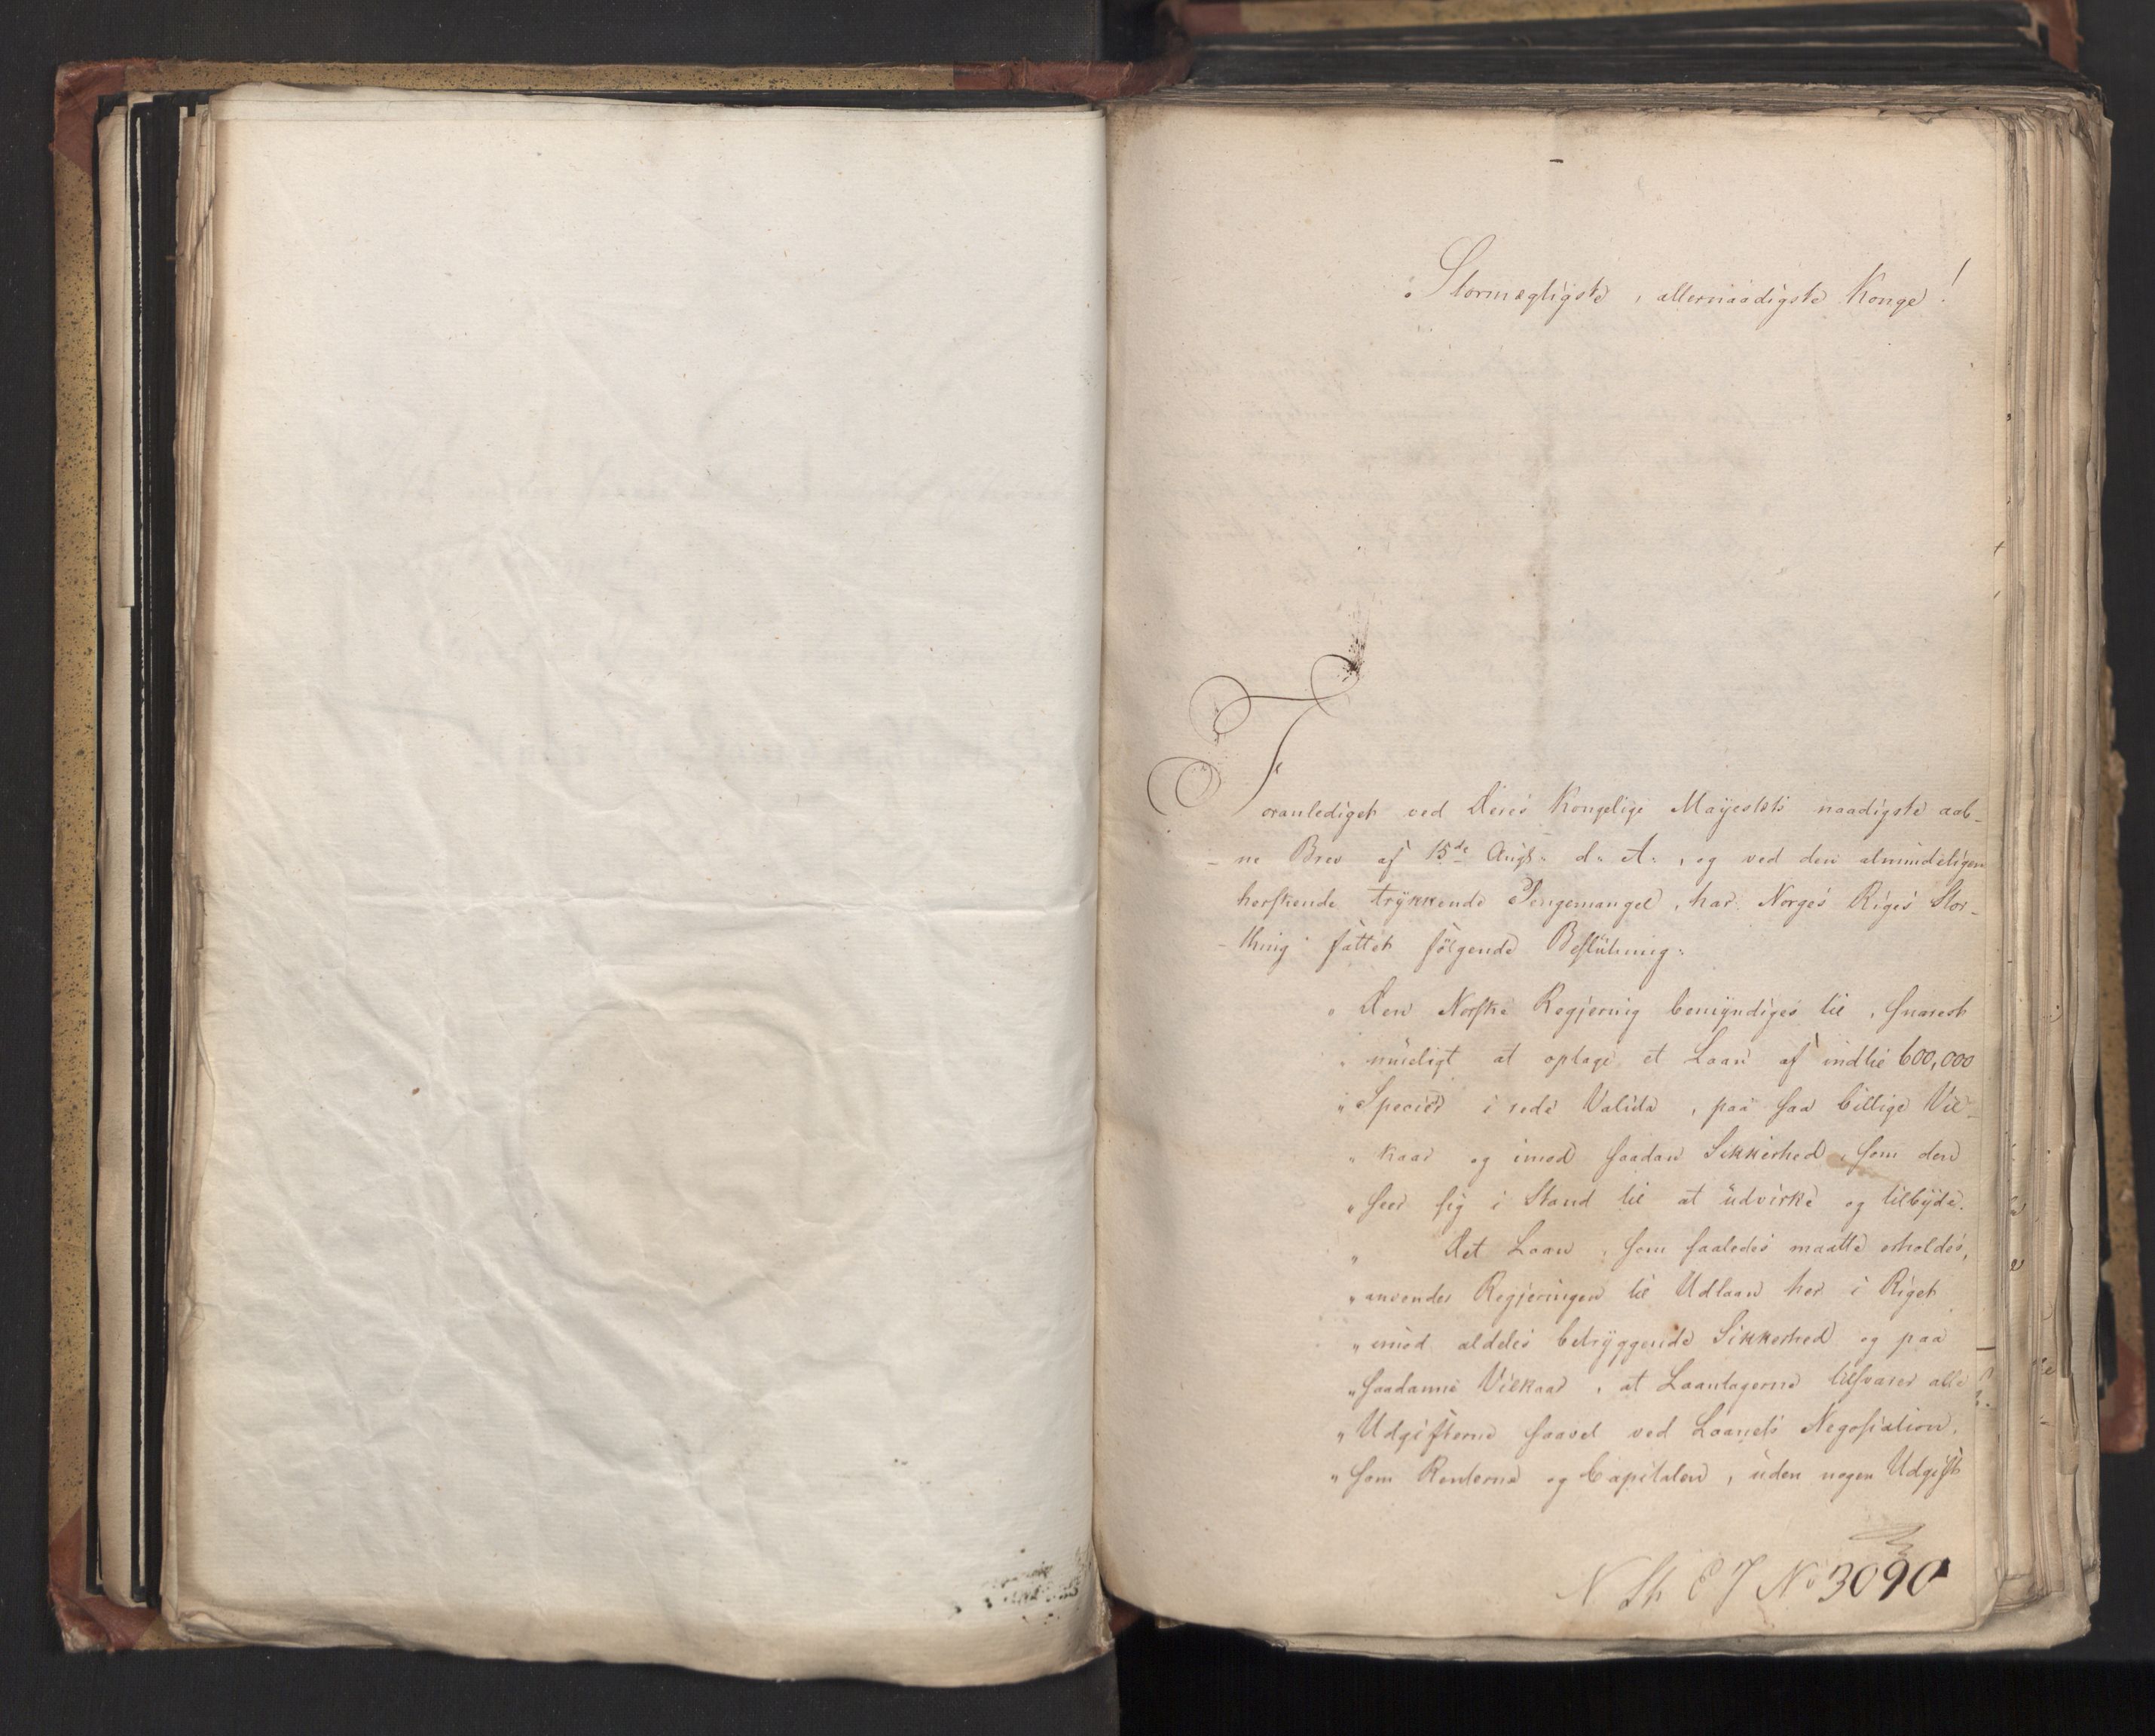 Stormægtigste, allernaadigste Konge!
Foranlediget ved Deres Kongelige Mayestæts naadigste aab-
-ne Brev af 15de Augt: d: A:, og ved den almindeligen
herskende trykkende Pengemangel, har Norges Riges Stor-
-thing fattet følgende Beslutning:
" Den Norske Regjering bemyndiges til, snarest
" mueligt at optage et Laan af indtil 600,000
" Species i rede Valuta, paa saa billige Vil-
" kaar og imod saadan Sikkerhed, som den
" seer sig i Stand til at udvirke og tilbyde.
" Det Laan, som saaledes maatte erholdes,
" anvender Regjeringen til Udlaan her i Riget
" imod aldeles betryggende Sikkerhed og paa
" saadanne Vilkaar, at Laantagerne tilsvarer alle
" Udgifterne saavel ved Laanets Negosiation,
" som Renterne og Capitalen, uden nogen Udgift
N St E J No 3090